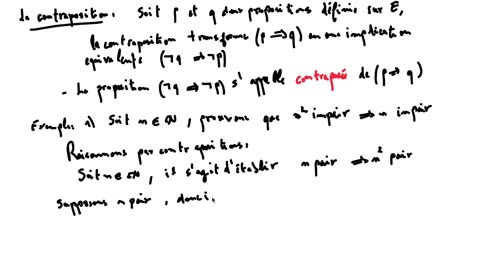 La contraposition. Soit p et q deux propositions définies sur E,
la contraposition transforme (p ⟹ q) en une implication
équivalente (¬q ⟹ ¬p)
- La proposition (¬q ⟹ ¬p) s'appelle contraposée de (p ⟹ q)
Exemples 1) Soit n ∈ ℕ, prouvons que n² impair ⟹ n impair
Raisonnons par contraposition.
Soit n ∈ ℕ, il s'agit d'établir n pair ⟹ n² pair
Supposons n pair, donc